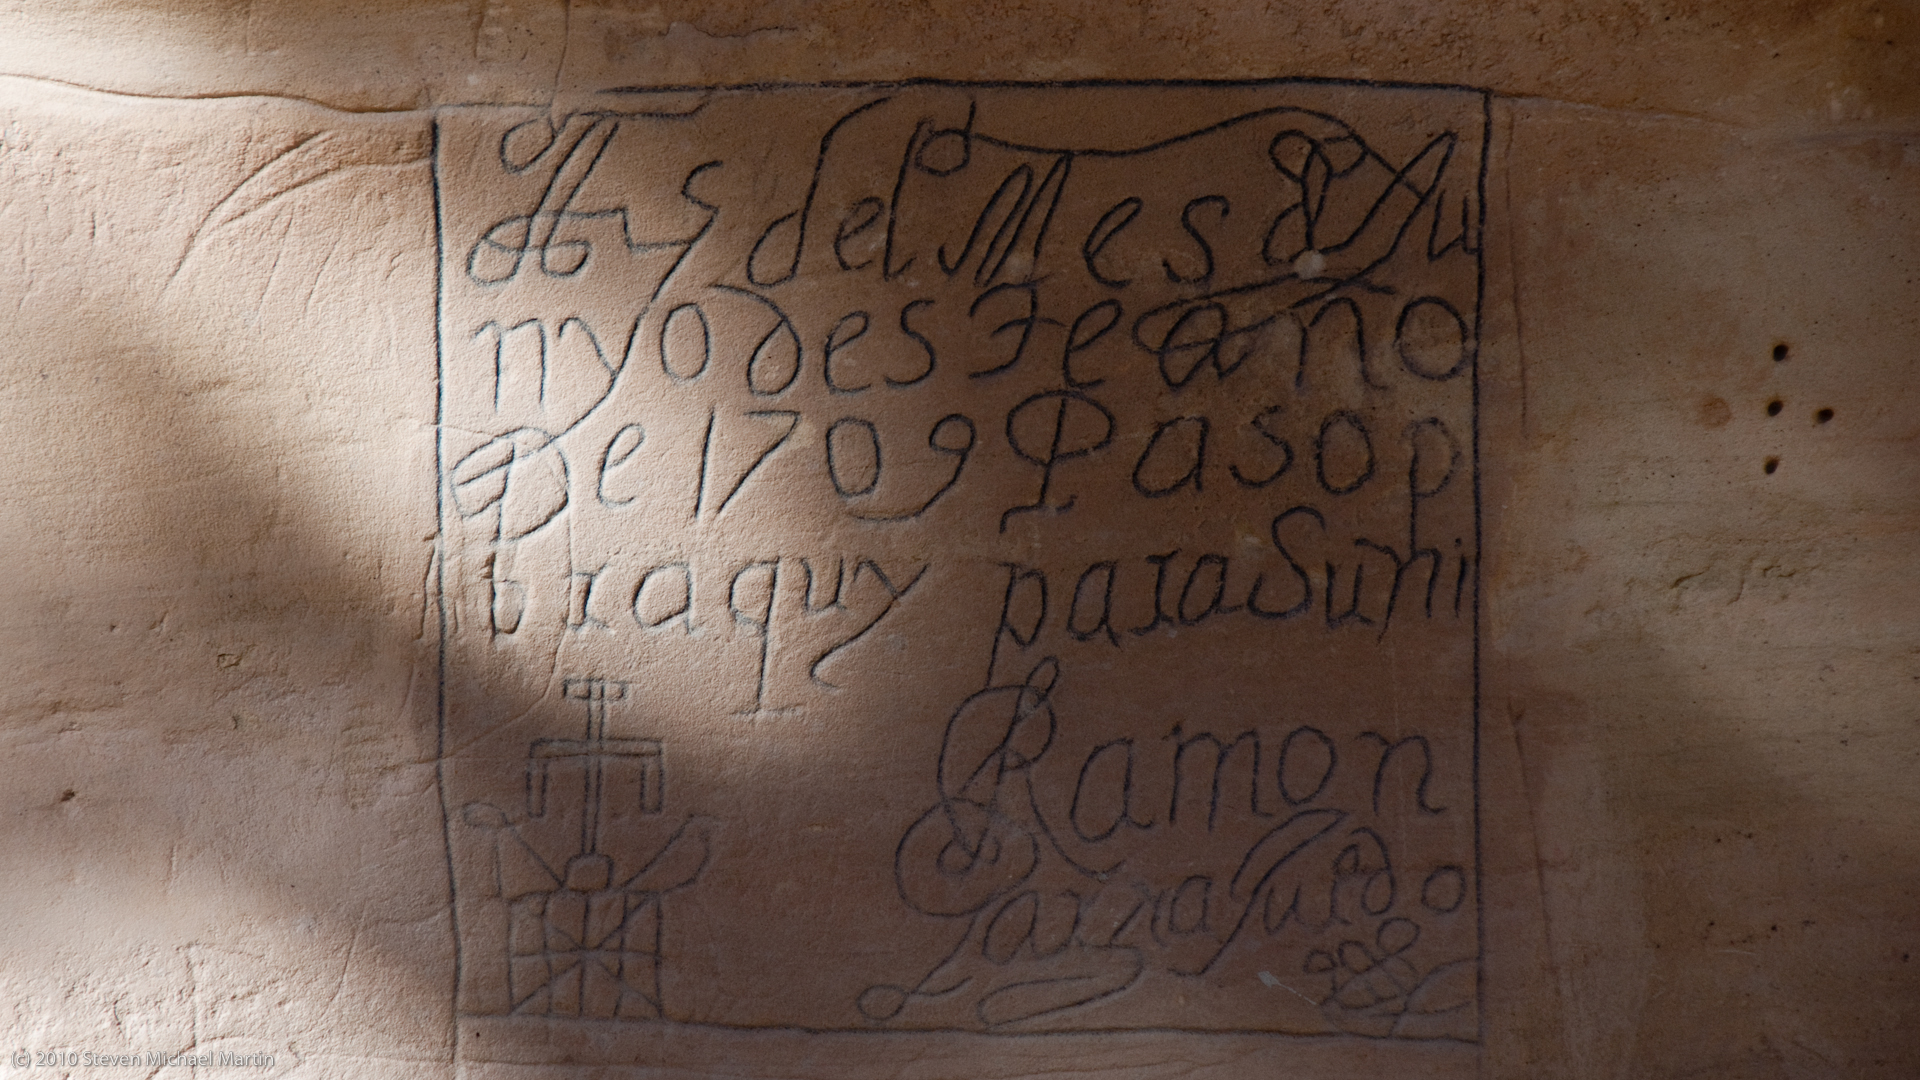 A 25 del Mes de Ju
nyo desTe año
De 1709 Paso p
or aquy para Suñi
Ramon
Garzia Jurado
(c) 2010 Steven Michael Martin